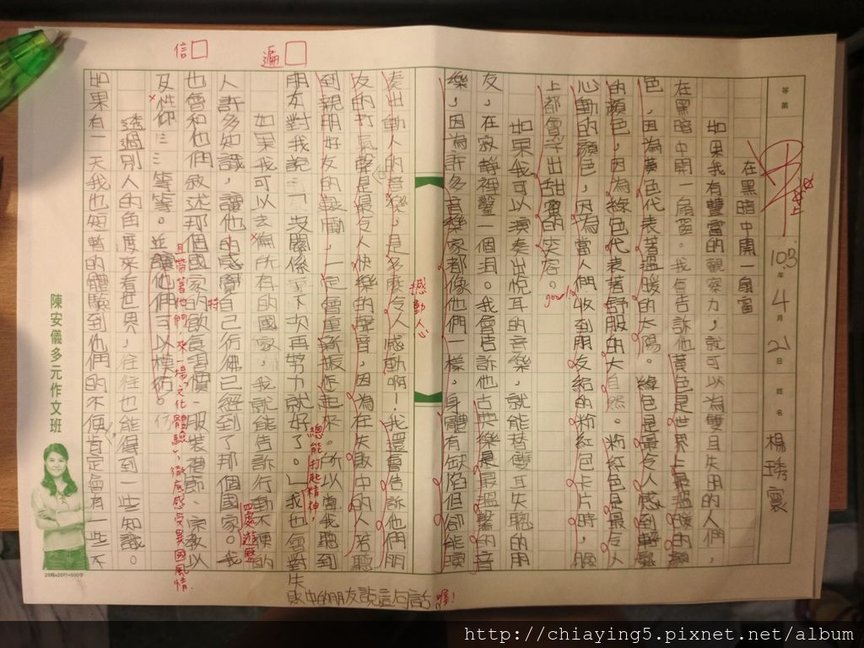 等第
甲上
103年4月21日
姓名
楊琇寰
在黑暗中開一扇窗
如果我有豐富的觀察力，就可以為雙目失明的人們，
在黑暗中開一扇窗。我會告訴他黃色是世界上最溫暖的顏
色，因為黃色代表著溫暖的太陽。綠色是最令人感到舒服
的顏色，因為綠色代表著舒服的大自然。粉紅色是最令人
心動的顏色，因為當人們收到朋友給的粉紅色卡片時，臉
上都會浮出甜蜜的笑容。
good!
如果我可以演奏出悅耳的音樂，就能替雙耳失聰的朋
友，在寂靜裡
我會告訴他古典樂是最溫馨的音
樂，因為許多音樂家都像他們一樣，身體有缺陷但卻能演
奏出動人的音樂，是多麼令人感動啊！我還會告訴他們朋
感動人心
友的打氣聲是最令人快樂的聲音，因為在失敗中的人若聽
到親朋好友的鼓勵，一定會重新振作起來。所以當我聽到
總能打起精神，
朋友對我說：「沒關係，下次再努力就好了。」我也會對失
敗中的朋友說這句話喔！
遍
如果我可以去遍所有的國家，我就能告訴行動不便的
四處遊歷
人許多知識，讓他的感覺自己彷彿已經到了那個國家。我
也會和他們敘述那個國家的飲食習慣、服裝禮節、宗教以
特
及信仰……等等。並讓他們可以模仿。
信
且帶著他們，來一場「文化體驗」，徹底感受異國風情。
透過別人的角度來看世界，往往也能得到一些知識。
如果有一天我也短暫的體驗到他們的不便肯定會有一些不
陳安儀多元作文班
http://chiaying5.pixnet.net/album